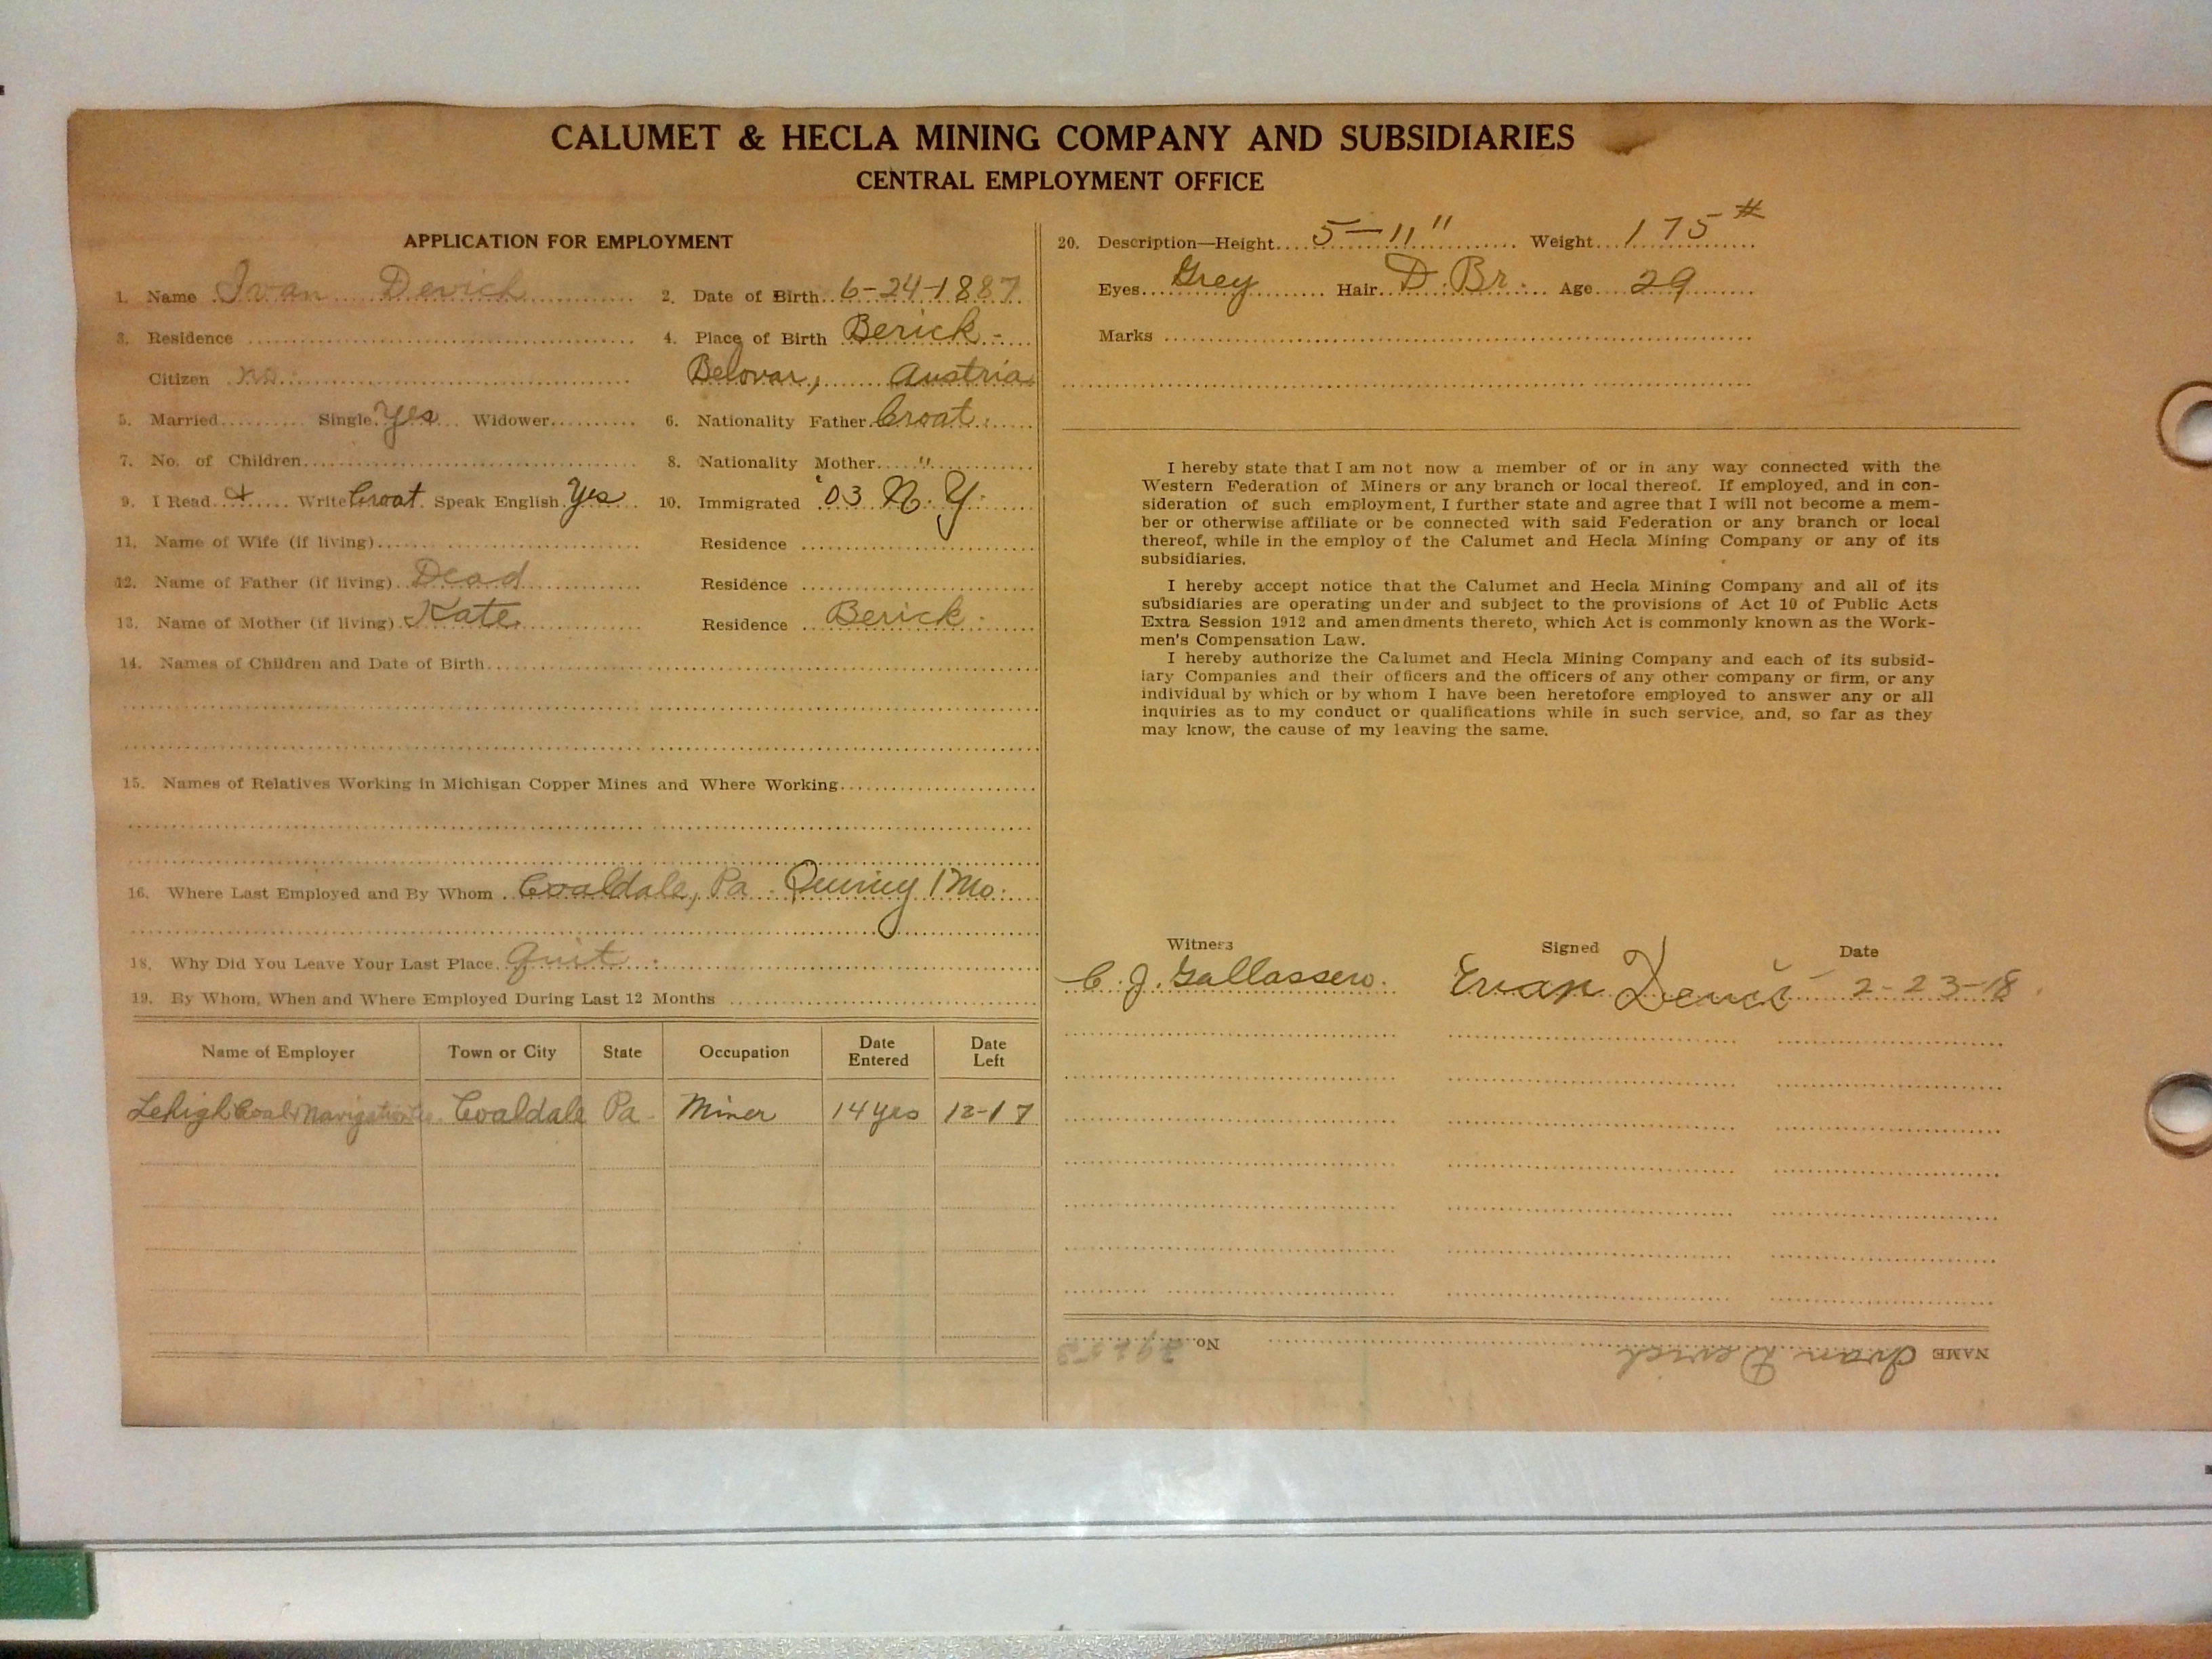 CALUMET & HECLA MINING COMPANY AND SUBSIDIARIES
CENTRAL EMPLOYMENT OFFICE
APPLICATION FOR EMPLOYMENT
1. Name Ivan Devich 2. Date of Birth 6-24-1887
3. Residence 4. Place of Birth Berick -
Citizen no. Belovar, Austria
5. Married Single Yes Widower 6. Nationality Father Croat.
7. No. of Children 8. Nationality Mother "
9. I Read & Write Croat Speak English Yes 10. Immigrated '03 N.Y.
11. Name of Wife (if living) Residence
12. Name of Father (if living) Dead Residence
13. Name of Mother (if living) Kate Residence Berick.
14. Names of Children and Date of Birth
15. Names of Relatives Working in Michigan Copper Mines and Where Working
16. Where Last Employed and By Whom Coaldale, Pa. Quincy 1 Mo.
18. Why Did You Leave Your Last Place Quit.
19. By Whom, When and Where Employed During Last 12 Months
Name of Employer Town or City State Occupation Date Entered Date Left
Lehigh Coal & Navigation Co. Coaldale Pa. Miner 14 yrs 12-17
20. Description—Height 5-11" Weight 175#
Eyes Grey Hair D. Br. Age 29
Marks
I hereby state that I am not now a member of or in any way connected with the
Western Federation of Miners or any branch or local thereof. If employed, and in con-
sideration of such employment, I further state and agree that I will not become a mem-
ber or otherwise affiliate or be connected with said Federation or any branch or local
thereof, while in the employ of the Calumet and Hecla Mining Company or any of its
subsidiaries.
I hereby accept notice that the Calumet and Hecla Mining Company and all of its
subsidiaries are operating under and subject to the provisions of Act 10 of Public Acts
Extra Session 1912 and amendments thereto, which Act is commonly known as the Work-
men's Compensation Law.
I hereby authorize the Calumet and Hecla Mining Company and each of its subsid-
iary Companies and their officers and the officers of any other company or firm, or any
individual by which or by whom I have been heretofore employed to answer any or all
inquiries as to my conduct or qualifications while in such service, and, so far as they
may know, the cause of my leaving the same.
Witness Signed Date
C. J. Gallassero. Evan Devič 2-23-18.
NAME Ivan Devich No.